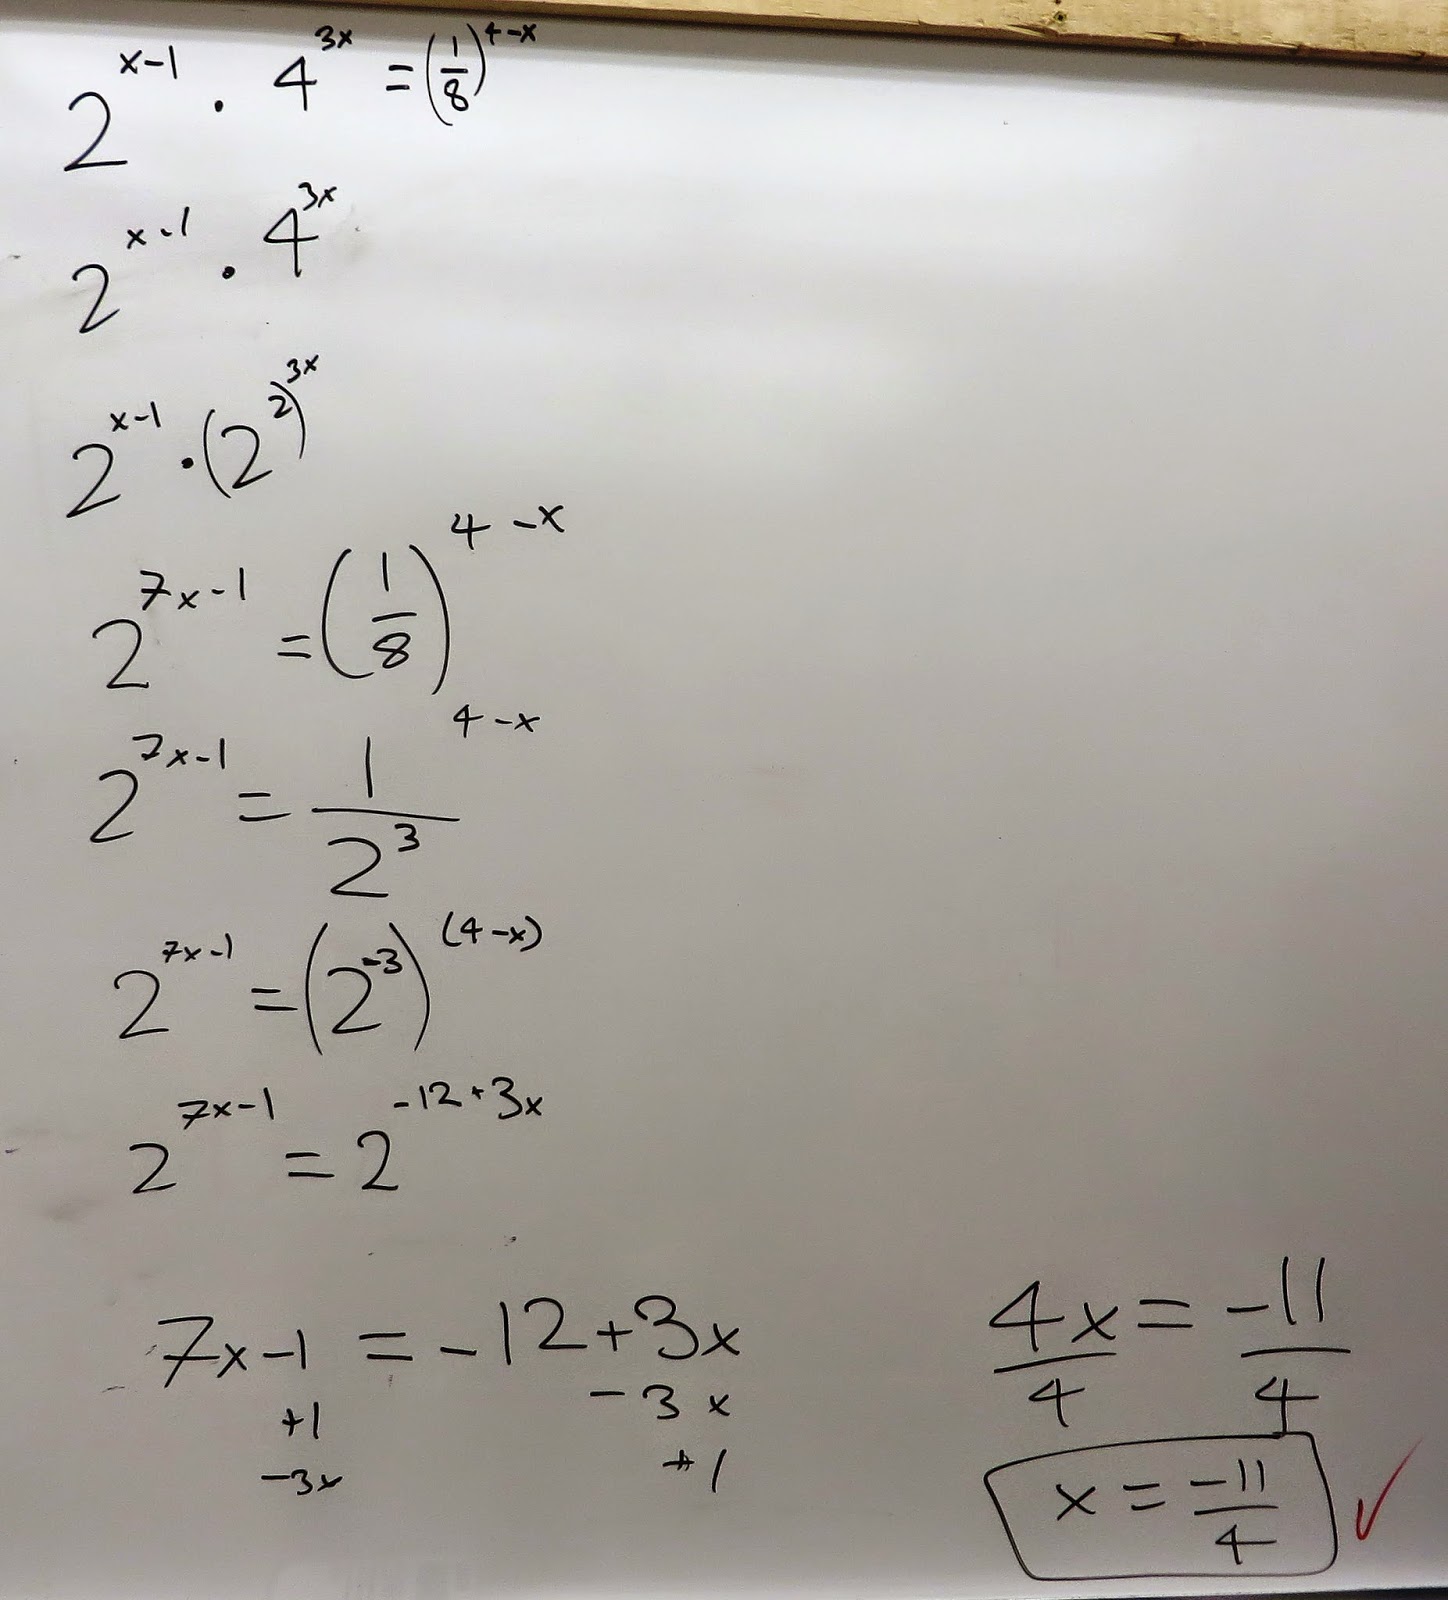 2^(x-1) · 4^(3x) = (1/8)^(4-x)
2^(x-1) · 4^(3x)
2^(x-1) · (2^2)^(3x)
2^(7x-1) = (1/8)^(4-x)
2^(7x-1) = 1/2^3 ^(4-x)
2^(7x-1) = (2^-3)^(4-x)
2^(7x-1) = 2^(-12+3x)
7x-1 = -12+3x
+1 -3x
-3x +1
4x/4 = -11/4
x = -11/4 ✓